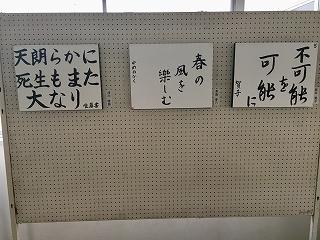 天朗らかに
死生もまた
大なり
春の
風を
楽しむ
不可能
を
可能に